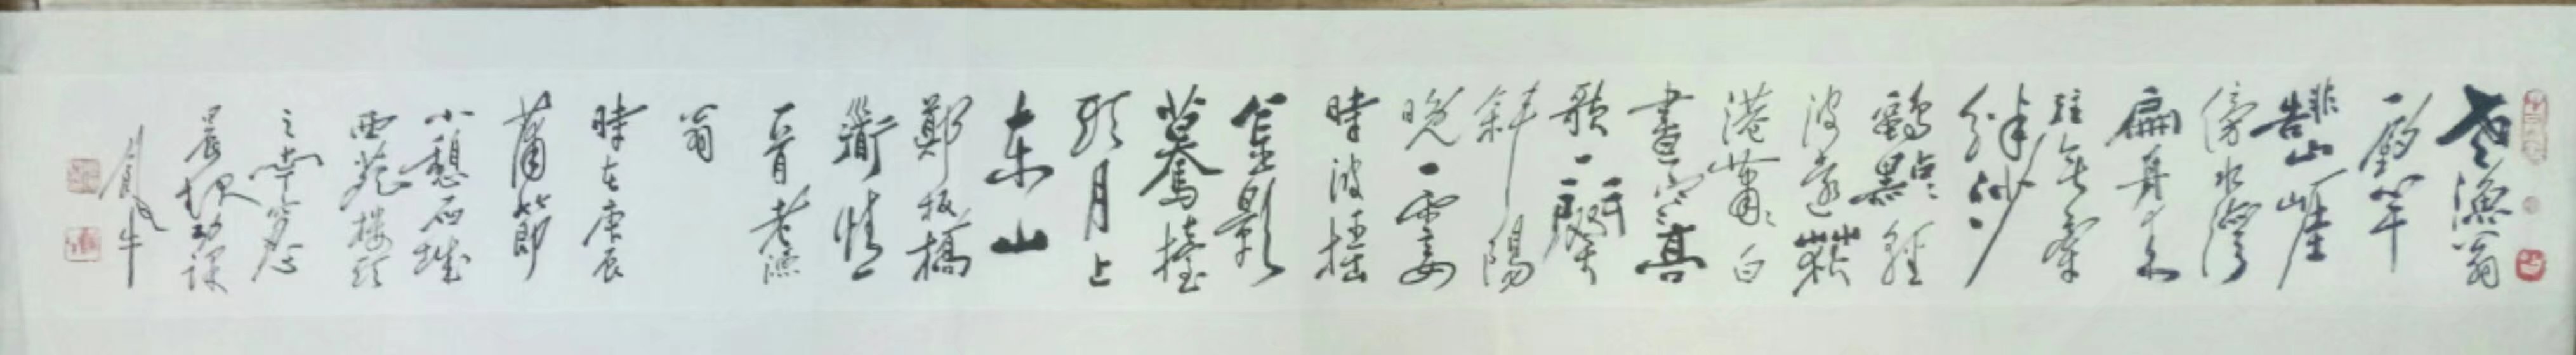 老漁翁
一釣竿
靠山崖
傍水灣
扁舟來
往無牽
絆沙
鷗點點輕
波遠荻
港蕭蕭白
晝寒高
歌一琴
斜陽
晚一霎
時波摇
金影
驀擡
頭月上
東山
鄭板橋
道情一
首老漁
翁
時在庚辰
蒲節
小憩石城
西苑樓頭
之
晨起功課
牛